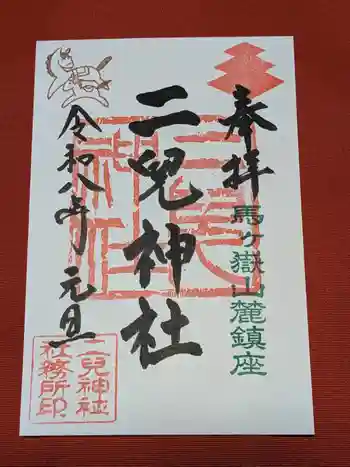 奉拝
馬ヶ嶽山麓鎮座
二兒神社
二兒神社
令和八年 元旦
二兒神社
社務所印